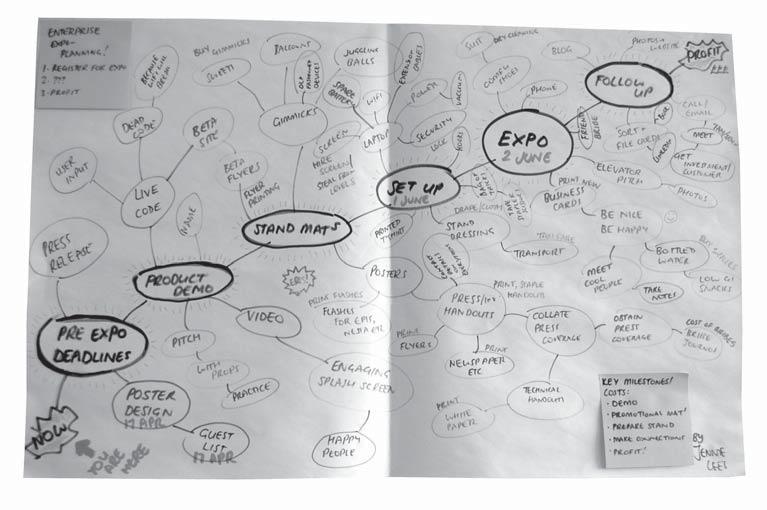 ENTERPRISE
EXPO-
PLANNING!
1. REGISTER FOR EXPO
2. ???
3. PROFIT
BUY GIMMICKS
SWEETS
BALLOONS
GIMMICKS
JUGGLING
BALLS
SPARE
BATTERY
WIFI
LAPTOP
EXTENSION
CABLES
POWER
SECURITY
LOCK
SUIT
DRY CLEANING
COMFY
SHOES
BLOG
PHONE
PHOTOS
WEBSITE
PROFIT
£££
FOLLOW
UP
CALL/
EMAIL
MEET
GET INVESTMENT/
CUSTOMER
SORT +
FILE CARDS
EXPO
2 JUNE
ELEVATOR
PITCH
PHOTOS
PRINT NEW
BUSINESS
CARDS
BE NICE
BE HAPPY
MEET
COOL
PEOPLE
TAKE
NOTES
BOTTLED
WATER
LOW GI
SNACKS
DEAD
CODE
LIVE
CODE
USER
INPUT
BETA
SITE
BETA
FLYERS
FLYER
PRINTING
SCREEN
HIRE
SCREEN/
STEAL FROM
SET UP
1 JUNE
DRAPE/CLOTH
STAND
DRESSING
TRANSPORT
STAND MATS
PRINTED
TSHIRT
POSTERS
PRESS
RELEASE
PRODUCT
DEMO
VIDEO
PRINT FLASHES
FLASHES
FOR EPIS,
PRINT, STAPLE
HANDOUTS
PRESS/
HANDOUTS
PRINT
FLYERS
PRINT
NEWSPAPER
ETC
COLLATE
PRESS
COVERAGE
OBTAIN
PRESS
COVERAGE
COST OF BRIBES
BRIBE
TECHNICAL
HANDOUTS
PRINT
WHITE
PAPER
PRE EXPO
DEADLINES
PITCH
WITH
PROPS
PRACTICE
ENGAGING
SPLASH SCREEN
HAPPY
PEOPLE
POSTER
DESIGN
17 APR
GUEST
LIST
17 APR
NOW
YOU
ARE
HERE
KEY MILESTONES/
COSTS:
· DEMO
· PROMOTIONAL MAT'
· PREPARE STAND
· MAKE CONNECTIONS
· PROFIT!
BY
JENNIE
LEES